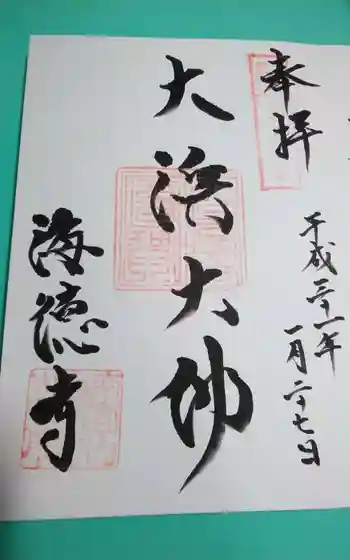 奉拝
平成三十一年
一月二十七日
大浜大师
海徳寺